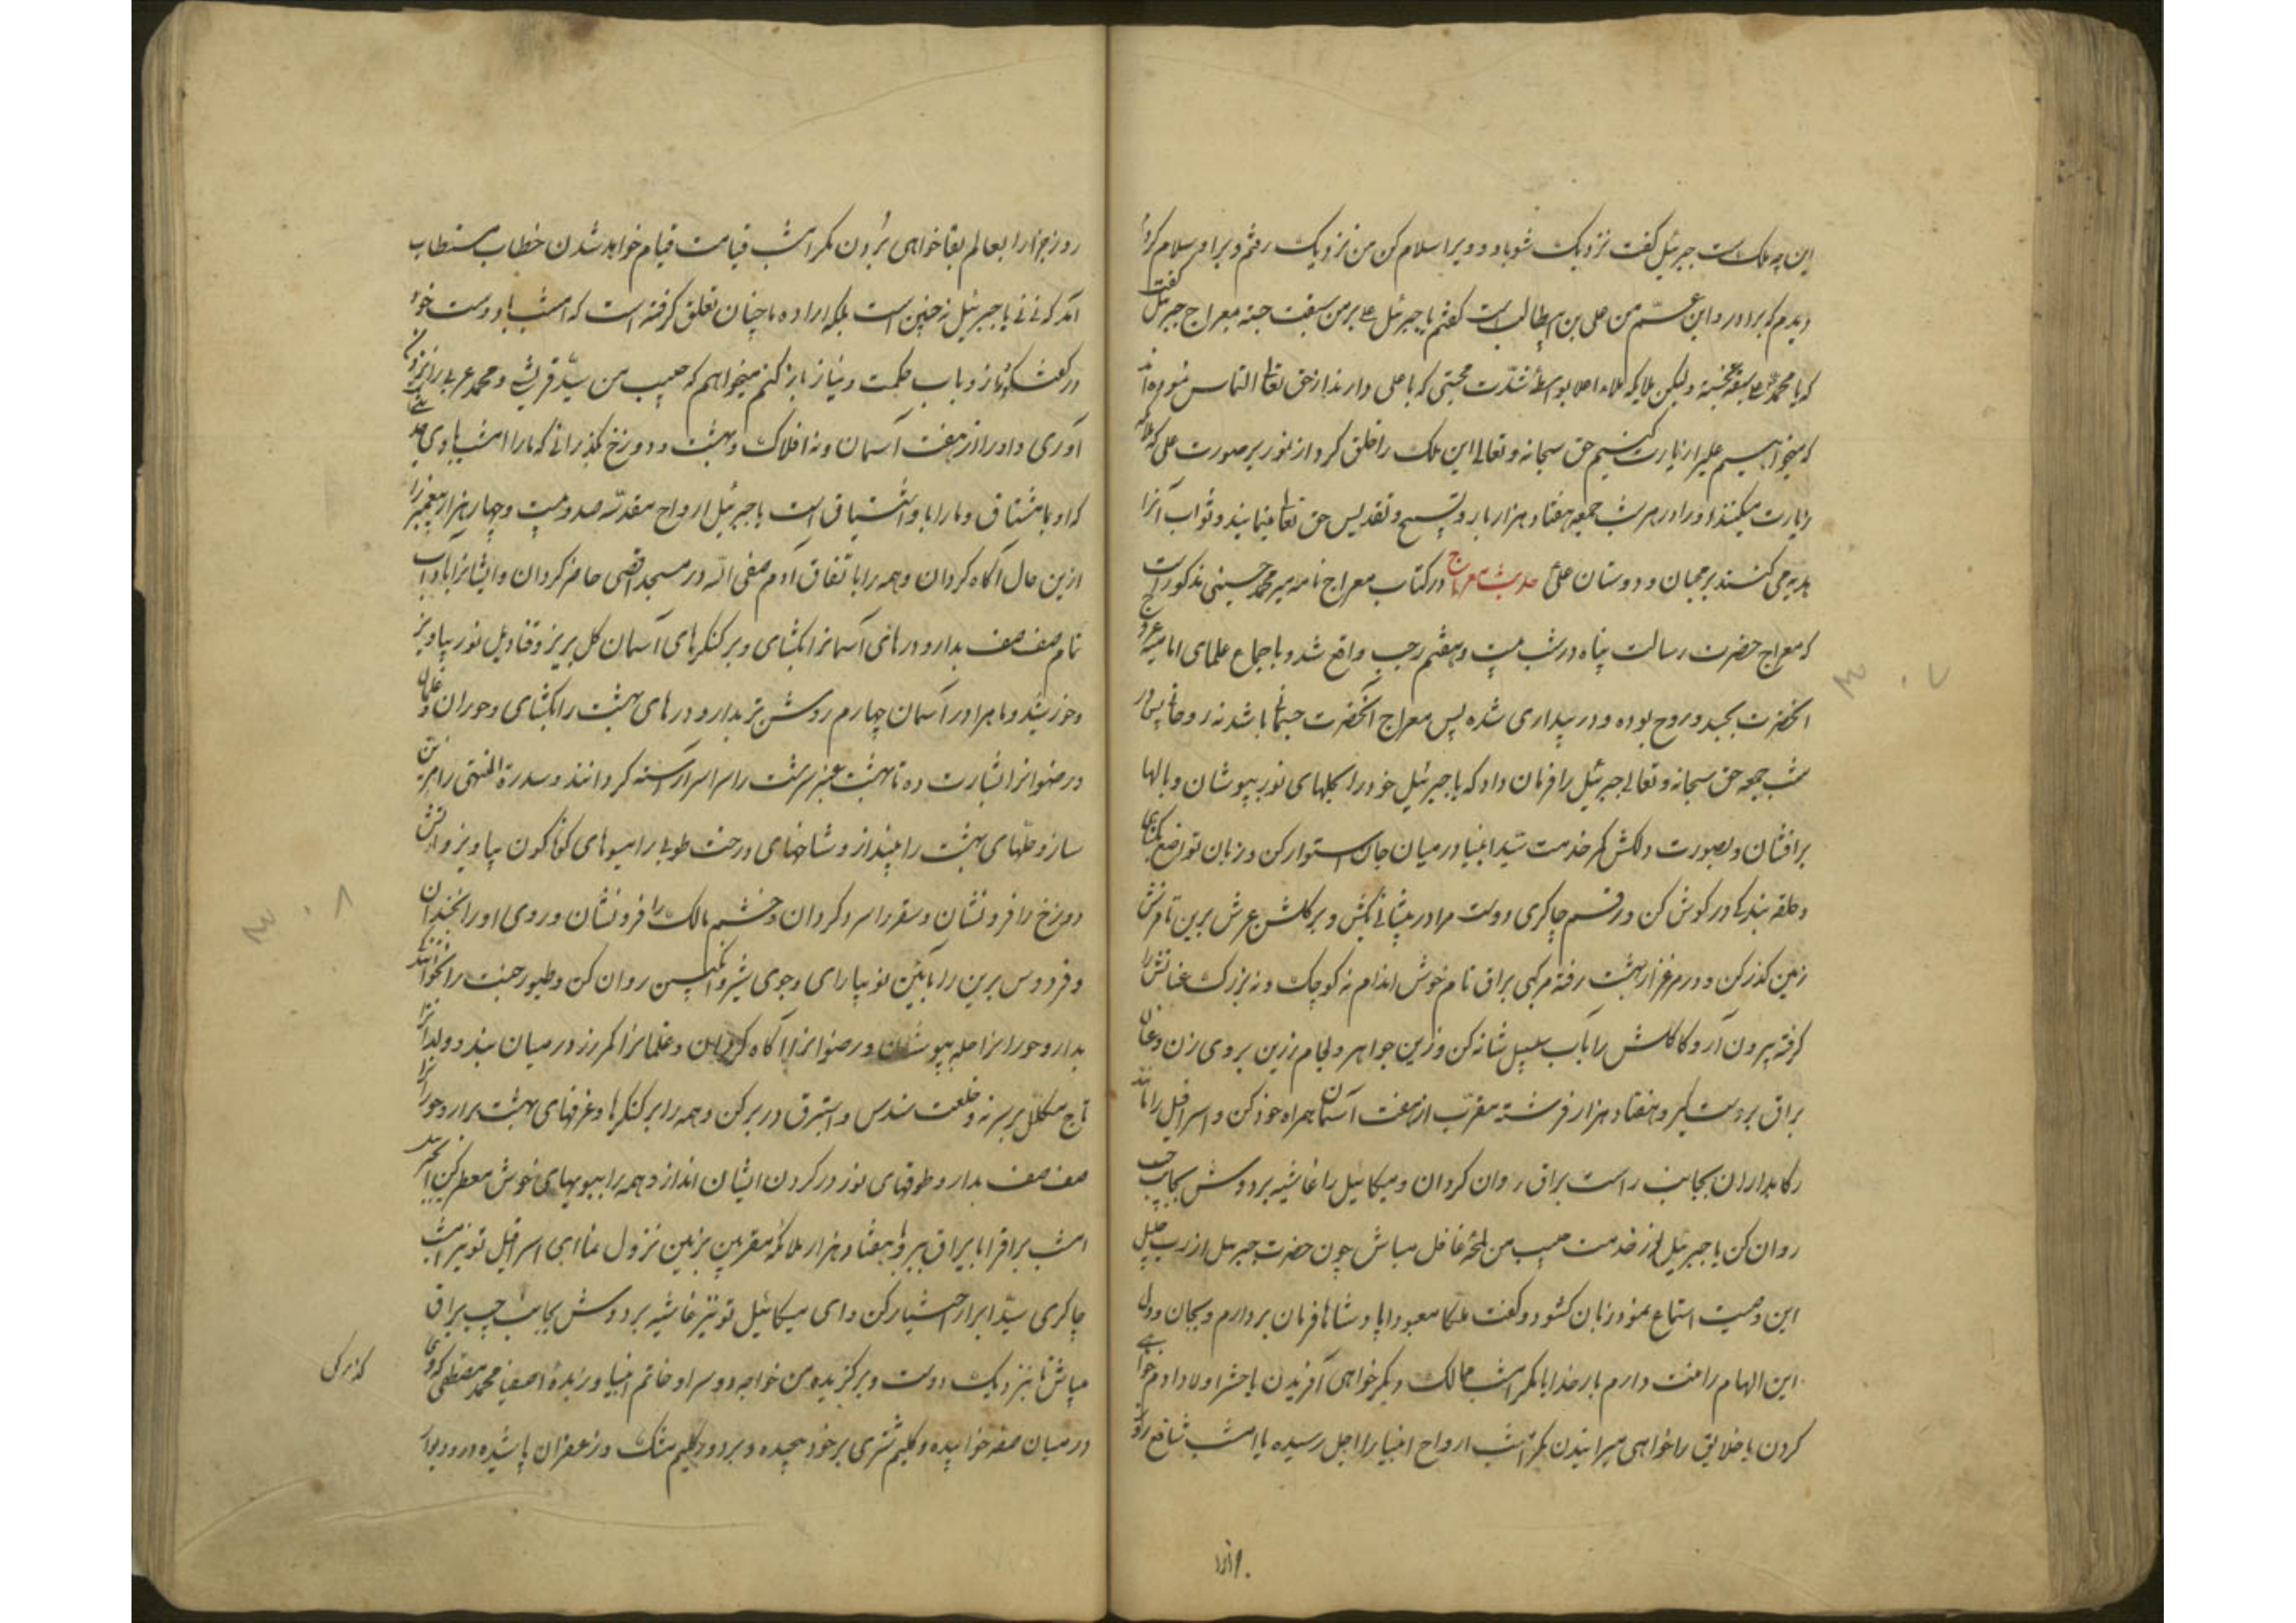 این چه ملک است جبرئیل گفت نزدیک شو باو و ویرا سلام کن من نزدیک رفتم و برا و سلام کردم
دیدم که برادر و ابن عم من علی بن ابیطالب است گفتم یا جبرئیل علی بر من سبقت جسته بمعراج جبرئیل گفت
که یا محمد علی سبقت نجسته ولیکن ملایکه ملاء اعلا بواسطه شدت محبتی که با علی دارند از حق تعالی التماس نمودند
که میخواهیم علیرا زیارت کنیم حق سبحانه و تعالی این ملک را خلق کرد از نور بر صورت علی که ملائکه
زیارت میکنند او را در هر شب جمعه هفتاد هزار بار و تسبیح و تقدیس حق تعالی مینمایند و ثواب آنرا
هدیه می کنند بر محبان و دوستان علی حدیث معراج در کتاب معراج نامه میر محمد حسینی مذکور است
که معراج حضرت رسالت پناه در شب بیست و هفتم رجب واقع شد و باجماع علمای امامیه عروج
آنحضرت بجسد و روح بوده و در بیداری شده پس معراج آنحضرت جسمانی باشد نه روحانی پس در
شب جمعه حق سبحانه و تعالی جبرئیل را فرمان داد که یا جبرئیل خود را بحلهای نور بپوشان و بالها
برافشان و بصورت دلکش کمر خدمت سید انبیا در میان جان استوار کن و زبان تواضع بگشای
و حلقه بندگی در گوش کن و رقم چاکری دوست مرا در پیشانی بکش و بر گلشن عرش برین تا فرش
زمین گذر کن و در مرغزار بهشت رفته مرکبی براق نام خوش اندام نه کوچک و نه بزرگ عنانش را
گرفته بیرون آر و کاکلش را بآب سلسبیل شانه کن و زین جواهر و لجام زرین بر وی زن و عنان
براق بردست گیر و هفتاد هزار فرشته مقرب از هفت آسمان همراه خود کن و اسرافیل را مانند
رکابداران بجانب راست براق روان گردان و میکائیل را غاشیه بر دوش بجانب چپ
روان کن یا جبرئیل از خدمت حبیب من لمحه غافل مباش چون حضرت جبرئیل از رب جلیل
این وصیت استماع نمود زبان کشود و گفت ملکا معبودا پادشاها فرمان بردارم و بجان و دل
این الهام را منت دارم بار خدایا مگر امشب ممالک دیگر خواهی آفریدن یا حشر اولاد آدم خواهی
کردن یا خلایق را خواهی میرانیدن مگر امشب ارواح انبیا را اجل رسیده یا امشب شافع روز
روز جزا را بعالم بقا خواهی بردن مگر امشب قیامت قیام خواهد شدن خطاب مستطاب
آمد که نی نی یا جبرئیل نه چنین است بلکه اراده ما چنان تعلق گرفته است که امشب با دوست خود
در گفت و گو راز و باب حکمت و نیاز باز کنم میخواهم که حبیب من سید قریشی و محمد عربی را نزد من
آوری و او را از هفت آسمان و نه افلاک و بهشت و دوزخ بگذرانی که ما را امشب با وی
که او با مشتاق و ما را با و اشتیاق است یا جبرئیل ارواح مقدسه صد و بیست و چهار هزار پیغمبر را
ازین حال آگاه گردان و همه را باتفاق آدم صفی الله در مسجد اقصی حاضر گردان و ایشانرا باداب
تمام صف صف بدار و درهای آسمانرا بکشای و بر کنگرهای آسمان گل بریز و قنادیل نور بیاویز
و خورشید و ماهرا در آسمان چهارم روشن تر بدار و درهای بهشت را بکشای و حوران و غلمان
و رضوانرا بشارت ده تا بهشت عنبر سرشت را سراسر آراسته گردانند و سدرة المنتهی را مزین
ساز و حلهای بهشت را بینداز و شاخهای درخت طوبی را میوهای گوناگون بیاویز و آتش
دوزخ را فرو نشان و سقر را سرد گردان و خشم مالک را فرو نشان و روی او را بخندان
و فردوس برین را بآئین نو بیارای و جوی شیر و انگبین روان کن و طیور جنت را
بدار و حورانرا حله بپوشان و رضوانرا آگاه گردان و غلمانرا کمر زر در میان بند و ولدانرا
تاج مکلل بر سر نه و خلعت سندس و استبرق در بر کن و همه را بر کنگرها و غرفهای بهشت بدار و حورانرا
صف صف بدار و طوقهای نور در گردن ایشان انداز و همه را ببویهای خوش معطر کن
امشب براقرا با یراق ببر و با هفتاد هزار ملائکه مقربین بزمین نزول نما ای اسرافیل تو نیز امشب
چاکری سید ابرار اختیار کن و ای میکائیل تو نیز غاشیه بر دوش بجانب چپ براق
میباش تا بنزدیک دوست و برگزیده من خواجه دو سرا و خاتم انبیا و زبده اصفیا محمد مصطفی که وی
در میان صفه خوابیده و گلیم شتری بر خود پیچیده و بر دور گلیم مشک و زعفران پاشیده و در و دیوار